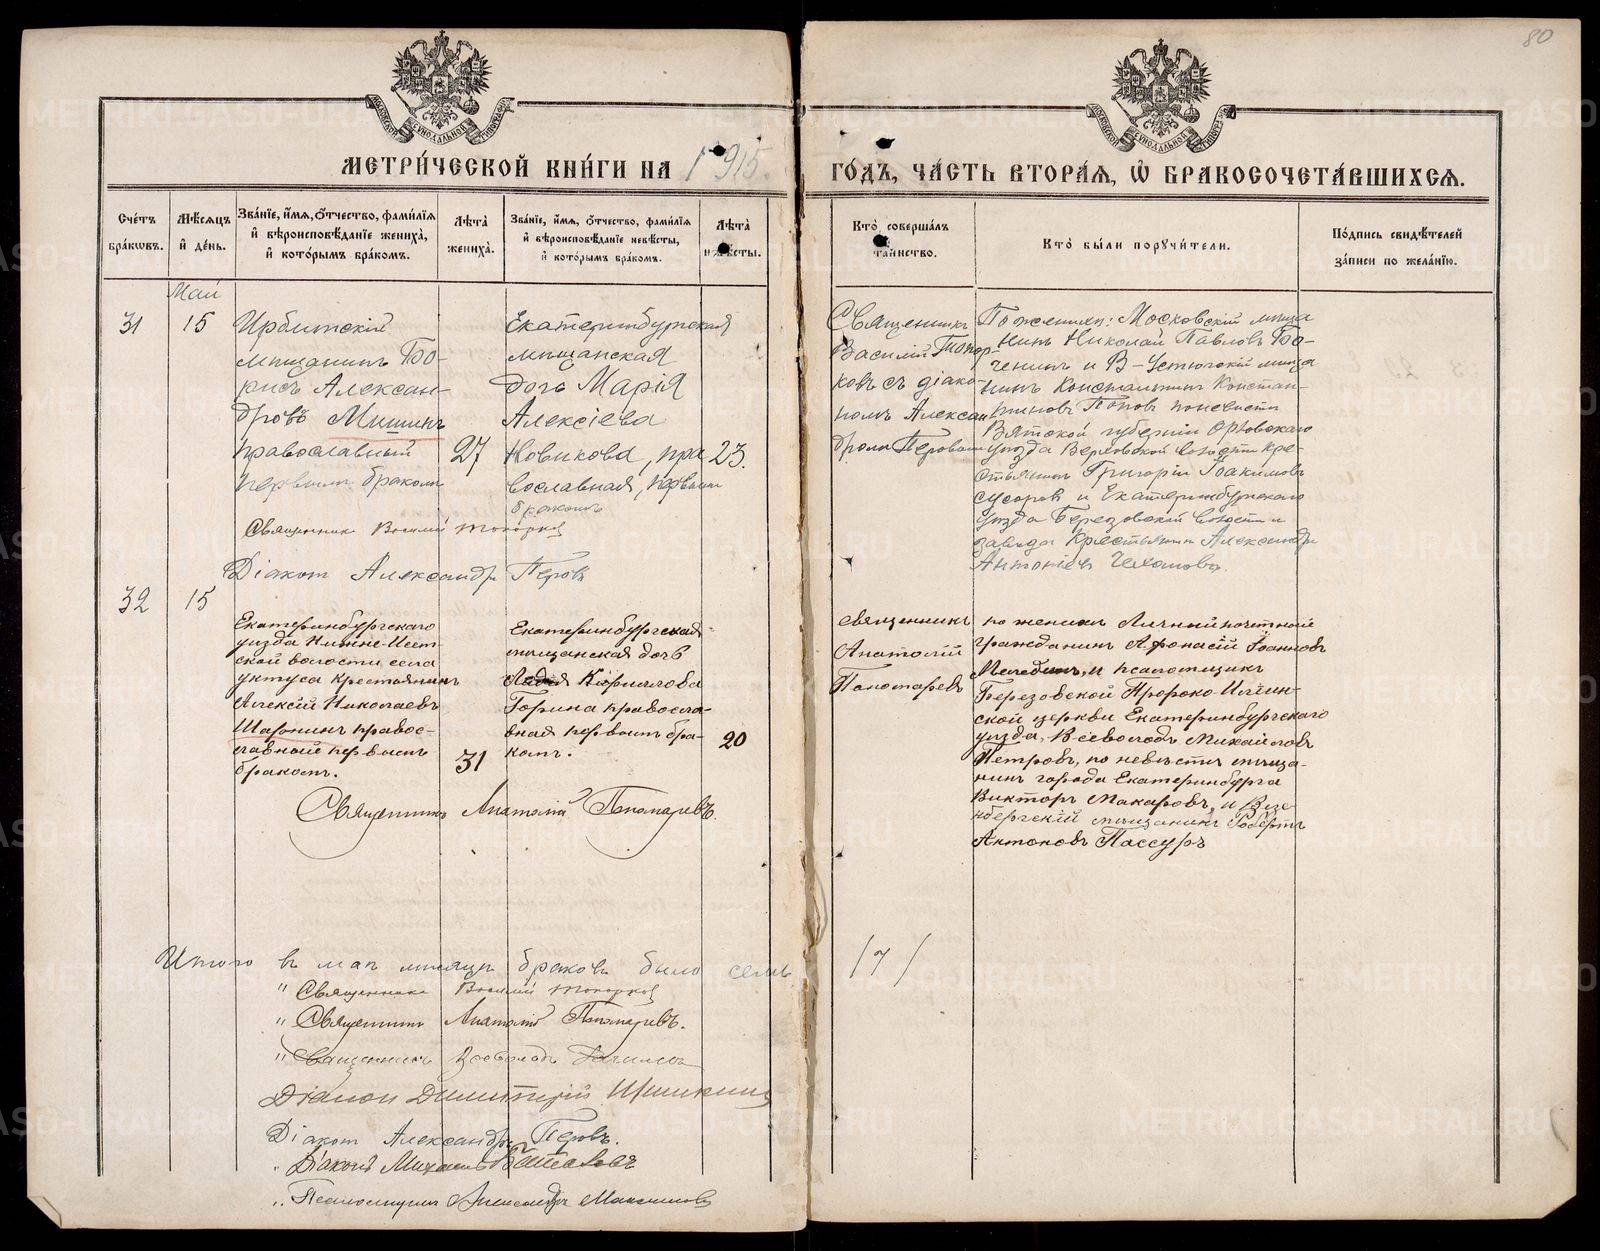 80
МЕТРИ́ЧЕСКОЙ КНИ́ГИ НА 1915.
ГО́ДЪ, ЧА́СТЬ ВТОРА́Я, Ѡ҆ БРАКОСОЧЕТА́ВШИХСЯ.
Сче́тъ бра́ковъ.
Мѣ́сяцъ и҆ де́нь.
Зва́нїе, и҆́мя, ѻ҆́тчество, фами́лїя и҆ вѣроисповѣ́данїе жениха̀, и҆ кото́рымъ бра́комъ.
Лѣта̀ жениха̀.
Зва́нїе, и҆́мя, ѻ҆́тчество, фами́лїя и҆ вѣроисповѣ́данїе невѣ́сты, и҆ кото́рымъ бра́комъ.
Лѣта̀ невѣ́сты.
Кто̀ соверша́лъ таинство.
Кто̀ бы́ли порꙋчи́тели.
По́дпись свидѣ́телей за́писи по жела́нїю.
Май
31
15
Ирбитскій
мѣщанинъ Бо-
рисъ Алексан-
дровъ Мишинъ
православный
первымъ бракомъ
27
Екатеринбургская
мѣщанская
дочь Марія
Алексіева
Новикова, пра
вославная, первымъ
бракомъ
23.
Священникъ
Василій Топор-
ковъ съ діако-
номъ Алексан
дромъ Перовымъ
По женихѣ: Московскій мѣща
нинъ Николай Павловъ Бо-
ченинъ и В-Устюгскій мѣща
нинъ Константинъ Констан-
тиновъ Поповъ по невѣстѣ
Вятской губерніи Орловскаго
уѣзда Верховской волости кре-
стьянинъ Григорій Іоакимовъ
Сусоровъ и Екатеринбургскаго
уѣзда Березовской волости и
завода крестьянинъ Александръ
Антоніевъ Чехомовъ.
Священникъ Василій Топорковъ
Діаконъ Александръ Перовъ
32
15
Екатеринбургскаго
уѣзда Нижне-Исет-
ской волости, села
Уктуса крестьянинъ
Алексій Николаевъ
Шаронинъ правос-
лавный первымъ
бракомъ.
31
Екатеринбургская
мѣщанская дочь
Лидія Кириллова
Горина правосла-
вная первымъ бра-
комъ.
20
священникъ
Анатолій
Пономаревъ
по женихѣ Личный почетный
гражданинъ Афонасій Іоанновъ
и псаломщикъ
Березовской Пророко-Ильин-
ской церкви Екатеринбургскаго
уѣзда, Всеволодъ Михайловъ
Петровъ, по невѣстѣ мѣща-
нинъ города Екатеринбурга
Викторъ Макаровъ, и Везе-
нбергскій мѣщанинъ Робертъ
Антоновъ Пассуръ
Священникъ Анатолій Пономаревъ.
Итого въ маѣ мѣсяцѣ браковъ было семь
/7/
" Священникъ Василій Топорковъ
" Священникъ Анатолій Пономаревъ.
" Священникъ Всеволодъ
Діаконъ Димитрій Шишкинъ
Діаконъ Александръ Перовъ.
" Діаконъ Михаилъ
" Псаломщикъ Александръ Максимовъ
METRIKI.GASO-URAL.RU